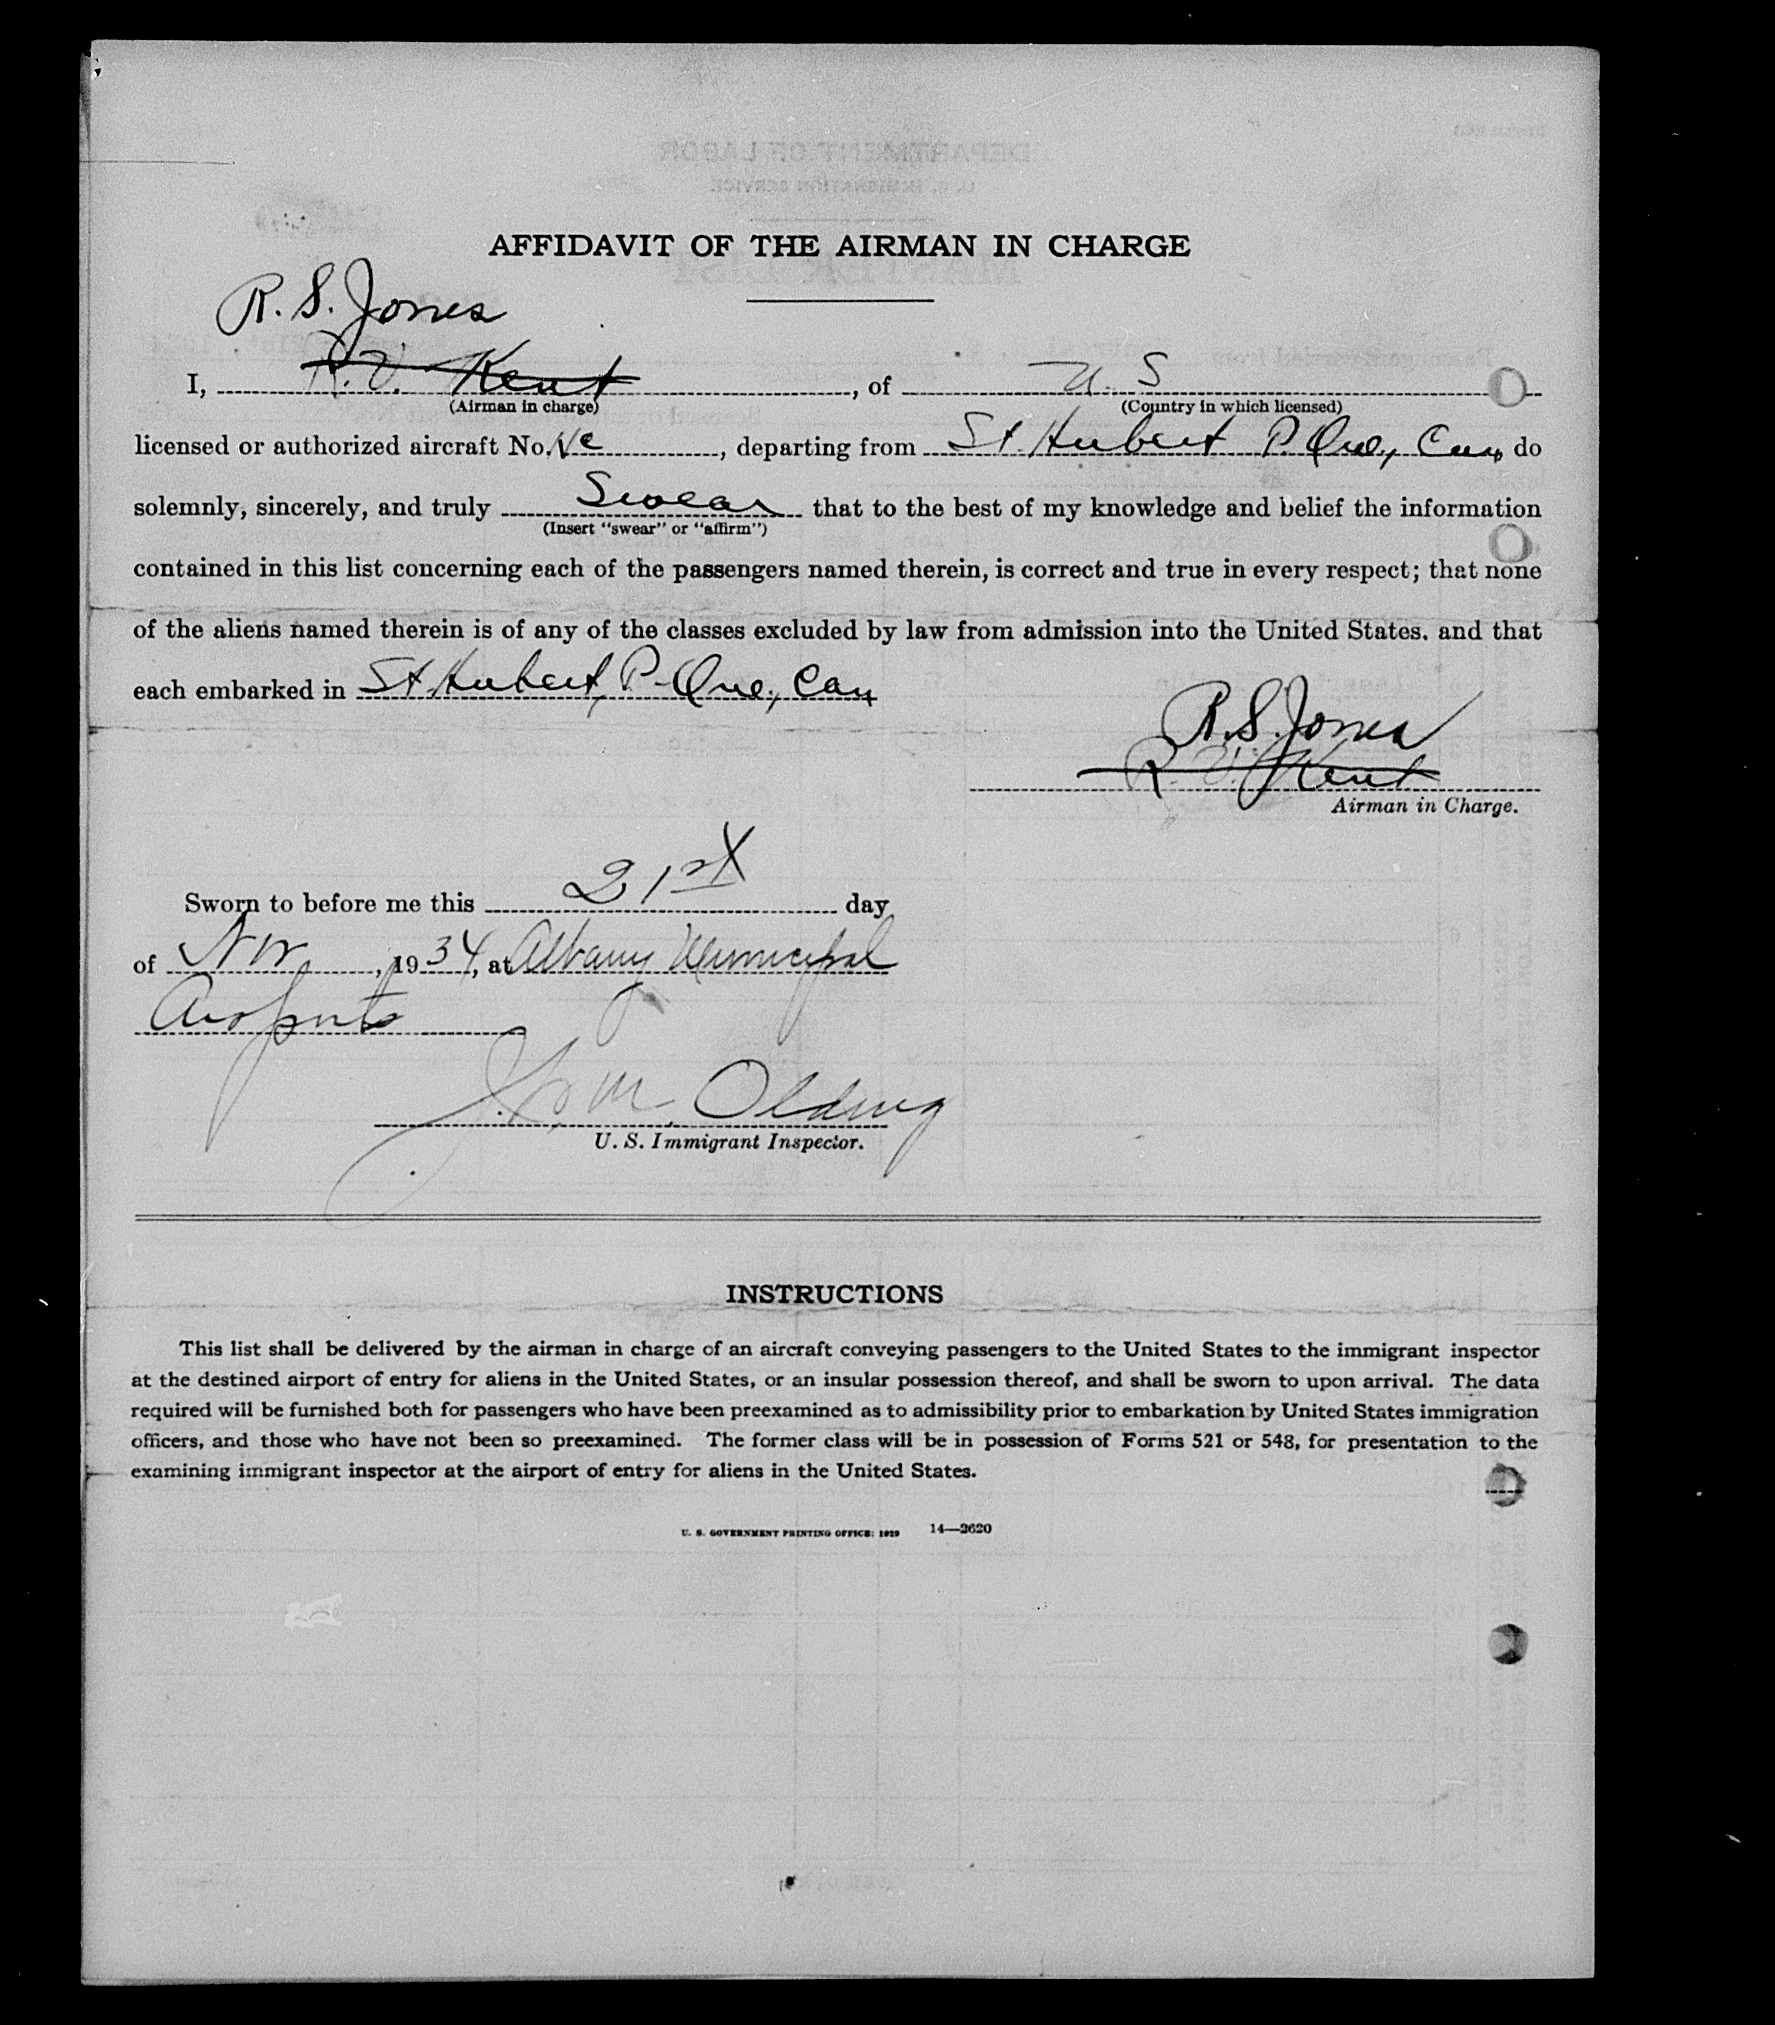 AFFIDAVIT OF THE AIRMAN IN CHARGE
R. S. Jones
I, R. V. Kent, of U. S
(Airman in charge) (Country in which licensed)
licensed or authorized aircraft No. , departing from St. Hubert P. Que., Can, do
solemnly, sincerely, and truly Swear that to the best of my knowledge and belief the information
(Insert "swear" or "affirm")
contained in this list concerning each of the passengers named therein, is correct and true in every respect; that none
of the aliens named therein is of any of the classes excluded by law from admission into the United States. and that
each embarked in St. Hubert, P. Que., Can
R. S. Jones
R. V. Kent
Airman in Charge.
Sworn to before me this 21st day
of Nov, 1934, at Albany Municipal
Airport
Olding
U. S. Immigrant Inspector.
INSTRUCTIONS
This list shall be delivered by the airman in charge of an aircraft conveying passengers to the United States to the immigrant inspector
at the destined airport of entry for aliens in the United States, or an insular possession thereof, and shall be sworn to upon arrival. The data
required will be furnished both for passengers who have been preexamined as to admissibility prior to embarkation by United States immigration
officers, and those who have not been so preexamined. The former class will be in possession of Forms 521 or 548, for presentation to the
examining immigrant inspector at the airport of entry for aliens in the United States.
U. S. GOVERNMENT PRINTING OFFICE: 1929 14—2620